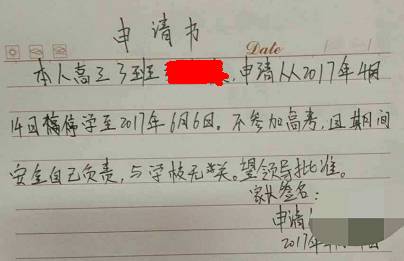 申请书
Date
本人高三3班 ，申请从2017年4月
14日 停学至2017年6月6日。不参加高考，且期间
安全自己负责，与学校无关。望领导批准。
家长签名：
申请
2017年